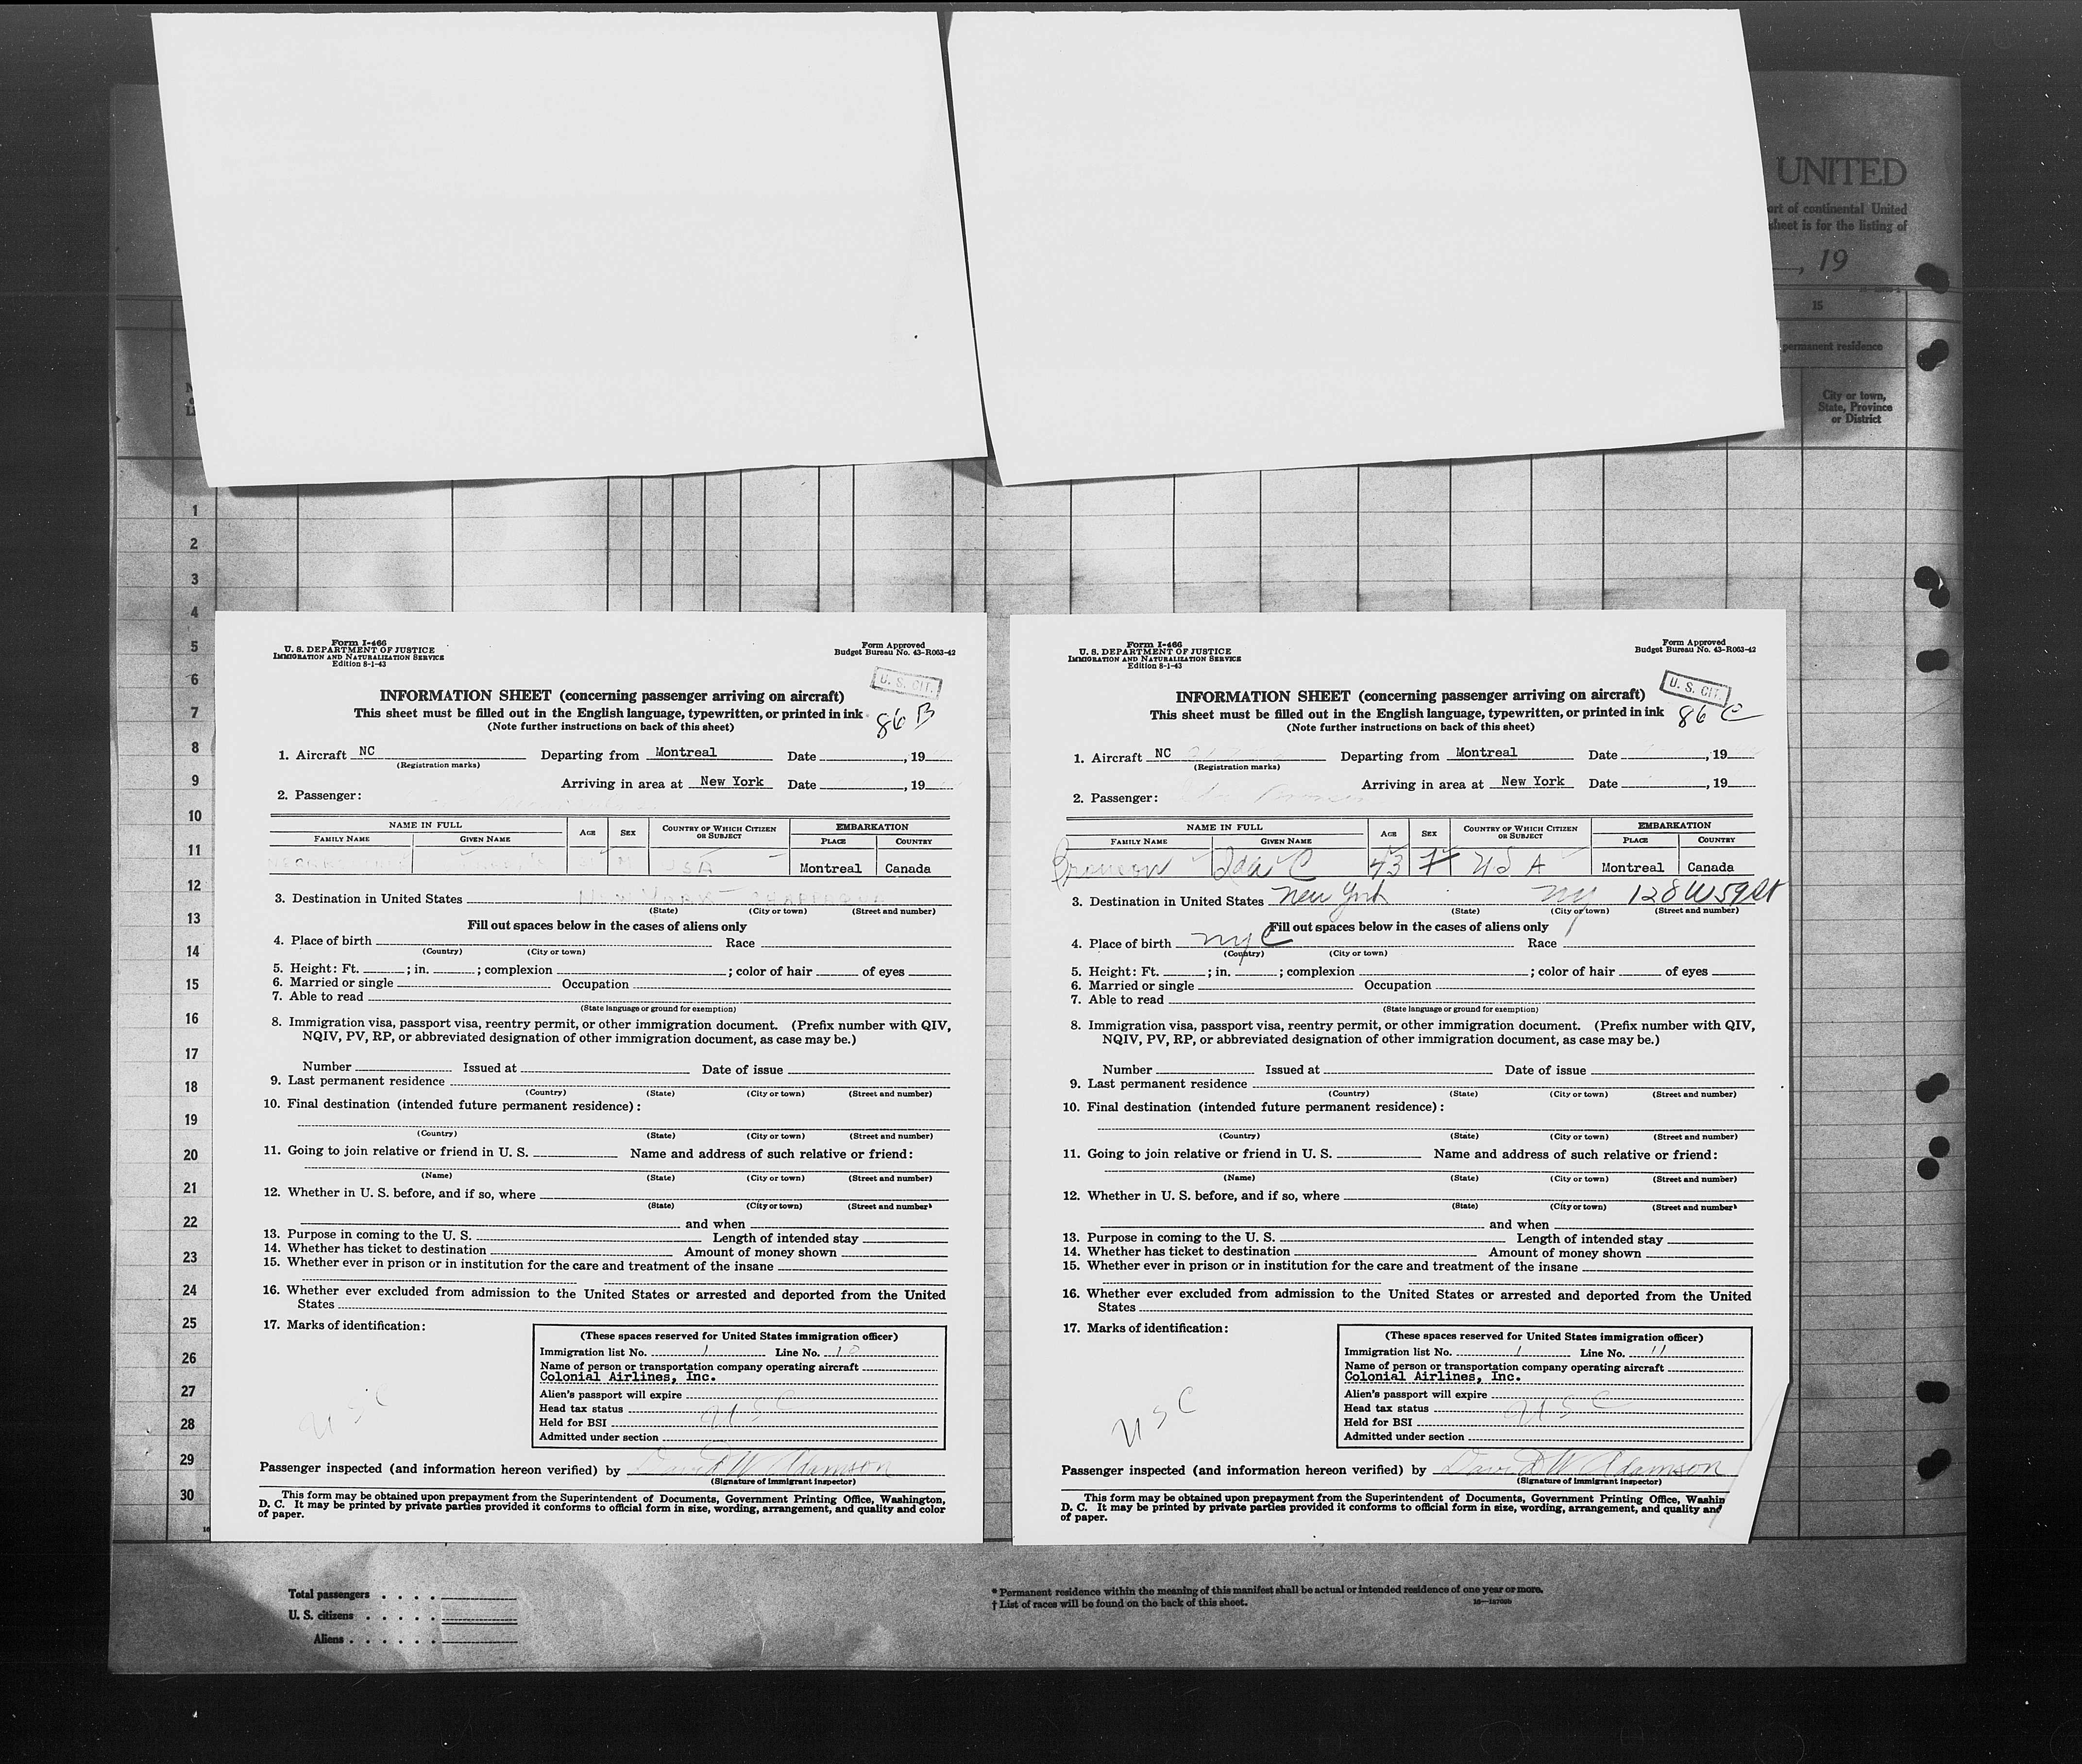 UNITED
ort of continental United
sheet is for the listing of
, 19
15
permanent residence
City or town,
State, Province
or District
1
2
3
4
5
6
7
8
9
10
11
12
13
14
15
16
17
18
19
20
21
22
23
24
25
26
27
28
29
30
Form I-466
U. S. DEPARTMENT OF JUSTICE
IMMIGRATION AND NATURALIZATION SERVICE
Edition 8-1-43
Form Approved
Budget Bureau No. 43-R063-42
U. S. CIT.
INFORMATION SHEET (concerning passenger arriving on aircraft)
This sheet must be filled out in the English language, typewritten, or printed in ink 86 B
(Note further instructions on back of this sheet)
1. Aircraft NC Departing from Montreal Date , 19
(Registration marks)
Arriving in area at New York Date , 19
2. Passenger:
NAME IN FULL AGE SEX COUNTRY OF WHICH CITIZEN OR SUBJECT EMBARKATION
FAMILY NAME GIVEN NAME PLACE COUNTRY
M USA Montreal Canada
3. Destination in United States NEW YORK CHAPPAQUA
(State) (City or town) (Street and number)
Fill out spaces below in the cases of aliens only
4. Place of birth Race
(Country) (City or town)
5. Height: Ft. ; in. ; complexion ; color of hair of eyes
6. Married or single Occupation
7. Able to read
(State language or ground for exemption)
8. Immigration visa, passport visa, reentry permit, or other immigration document. (Prefix number with QIV,
NQIV, PV, RP, or abbreviated designation of other immigration document, as case may be.)
Number Issued at Date of issue
9. Last permanent residence
(Country) (State) (City or town) (Street and number)
10. Final destination (intended future permanent residence):
(Country) (State) (City or town) (Street and number)
11. Going to join relative or friend in U. S. Name and address of such relative or friend:
(Name) (State) (City or town) (Street and number)
12. Whether in U. S. before, and if so, where
(State) (City or town) (Street and number)
and when
13. Purpose in coming to the U. S. Length of intended stay
14. Whether has ticket to destination Amount of money shown
15. Whether ever in prison or in institution for the care and treatment of the insane
16. Whether ever excluded from admission to the United States or arrested and deported from the United
States
17. Marks of identification:
(These spaces reserved for United States immigration officer)
Immigration list No. 1 Line No. 10
Name of person or transportation company operating aircraft
Colonial Airlines, Inc.
Alien's passport will expire
Head tax status USC
Held for BSI
Admitted under section
USC
Passenger inspected (and information hereon verified) by David W Adamson
(Signature of immigrant inspector)
This form may be obtained upon prepayment from the Superintendent of Documents, Government Printing Office, Washington,
D. C. It may be printed by private parties provided it conforms to official form in size, wording, arrangement, and quality and color
of paper.
Form I-466
U. S. DEPARTMENT OF JUSTICE
IMMIGRATION AND NATURALIZATION SERVICE
Edition 8-1-43
Form Approved
Budget Bureau No. 43-R063-42
U. S. CIT.
INFORMATION SHEET (concerning passenger arriving on aircraft)
This sheet must be filled out in the English language, typewritten, or printed in ink 86 C
(Note further instructions on back of this sheet)
1. Aircraft NC Departing from Montreal Date , 19
(Registration marks)
Arriving in area at New York Date , 19
2. Passenger:
NAME IN FULL AGE SEX COUNTRY OF WHICH CITIZEN OR SUBJECT EMBARKATION
FAMILY NAME GIVEN NAME PLACE COUNTRY
Ida C 43 F U S A Montreal Canada
3. Destination in United States New York NY 128 W 59 St
(State) (City or town) (Street and number)
Fill out spaces below in the cases of aliens only
4. Place of birth NYC Race
(Country) (City or town)
5. Height: Ft. ; in. ; complexion ; color of hair of eyes
6. Married or single Occupation
7. Able to read
(State language or ground for exemption)
8. Immigration visa, passport visa, reentry permit, or other immigration document. (Prefix number with QIV,
NQIV, PV, RP, or abbreviated designation of other immigration document, as case may be.)
Number Issued at Date of issue
9. Last permanent residence
(Country) (State) (City or town) (Street and number)
10. Final destination (intended future permanent residence):
(Country) (State) (City or town) (Street and number)
11. Going to join relative or friend in U. S. Name and address of such relative or friend:
(Name) (State) (City or town) (Street and number)
12. Whether in U. S. before, and if so, where
(State) (City or town) (Street and number)
and when
13. Purpose in coming to the U. S. Length of intended stay
14. Whether has ticket to destination Amount of money shown
15. Whether ever in prison or in institution for the care and treatment of the insane
16. Whether ever excluded from admission to the United States or arrested and deported from the United
States
17. Marks of identification:
(These spaces reserved for United States immigration officer)
Immigration list No. 1 Line No. 11
Name of person or transportation company operating aircraft
Colonial Airlines, Inc.
Alien's passport will expire
Head tax status USC
Held for BSI
Admitted under section
USC
Passenger inspected (and information hereon verified) by David W Adamson
(Signature of immigrant inspector)
This form may be obtained upon prepayment from the Superintendent of Documents, Government Printing Office, Washin
D. C. It may be printed by private parties provided it conforms to official form in size, wording, arrangement, and quality and
of paper.
Total passengers . . . .
U. S. citizens . . . . .
Aliens . . . . . .
* Permanent residence within the meaning of this manifest shall be actual or intended residence of one year or more.
† List of races will be found on the back of this sheet.